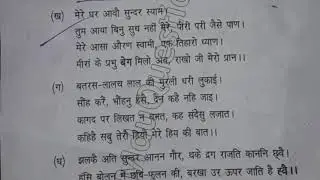 (ख) मेरे घर आवौ सुन्दर स्याम।
तुम आया बिनु सुध नहीं मेरे, पीरी परी जैसे पाण।
मेरे आसा औरण स्वामी, एक तिहारो ध्याण।
मीरां के प्रभु बेग मिलो अब, राखो जी मेरो प्रान।।
(ग) बतरस-लालच लाल की मुरली धरी लुकाई।
सौह करै, भौंहनु हंसै, देन कहे नहि जाइ।
कागद पर लिखत न बनत, कह संदेसु लजात।
कहिहै सबु तेरौ हियो मेरे हिम की बात।।
(घ) झलकै अति सुन्दर आनन गौर, थके द्रग राजति काननि छ्वै।
हंसि बोलन में छबि-फूलन की, बरखा उर ऊपर जाति है ह्वै।